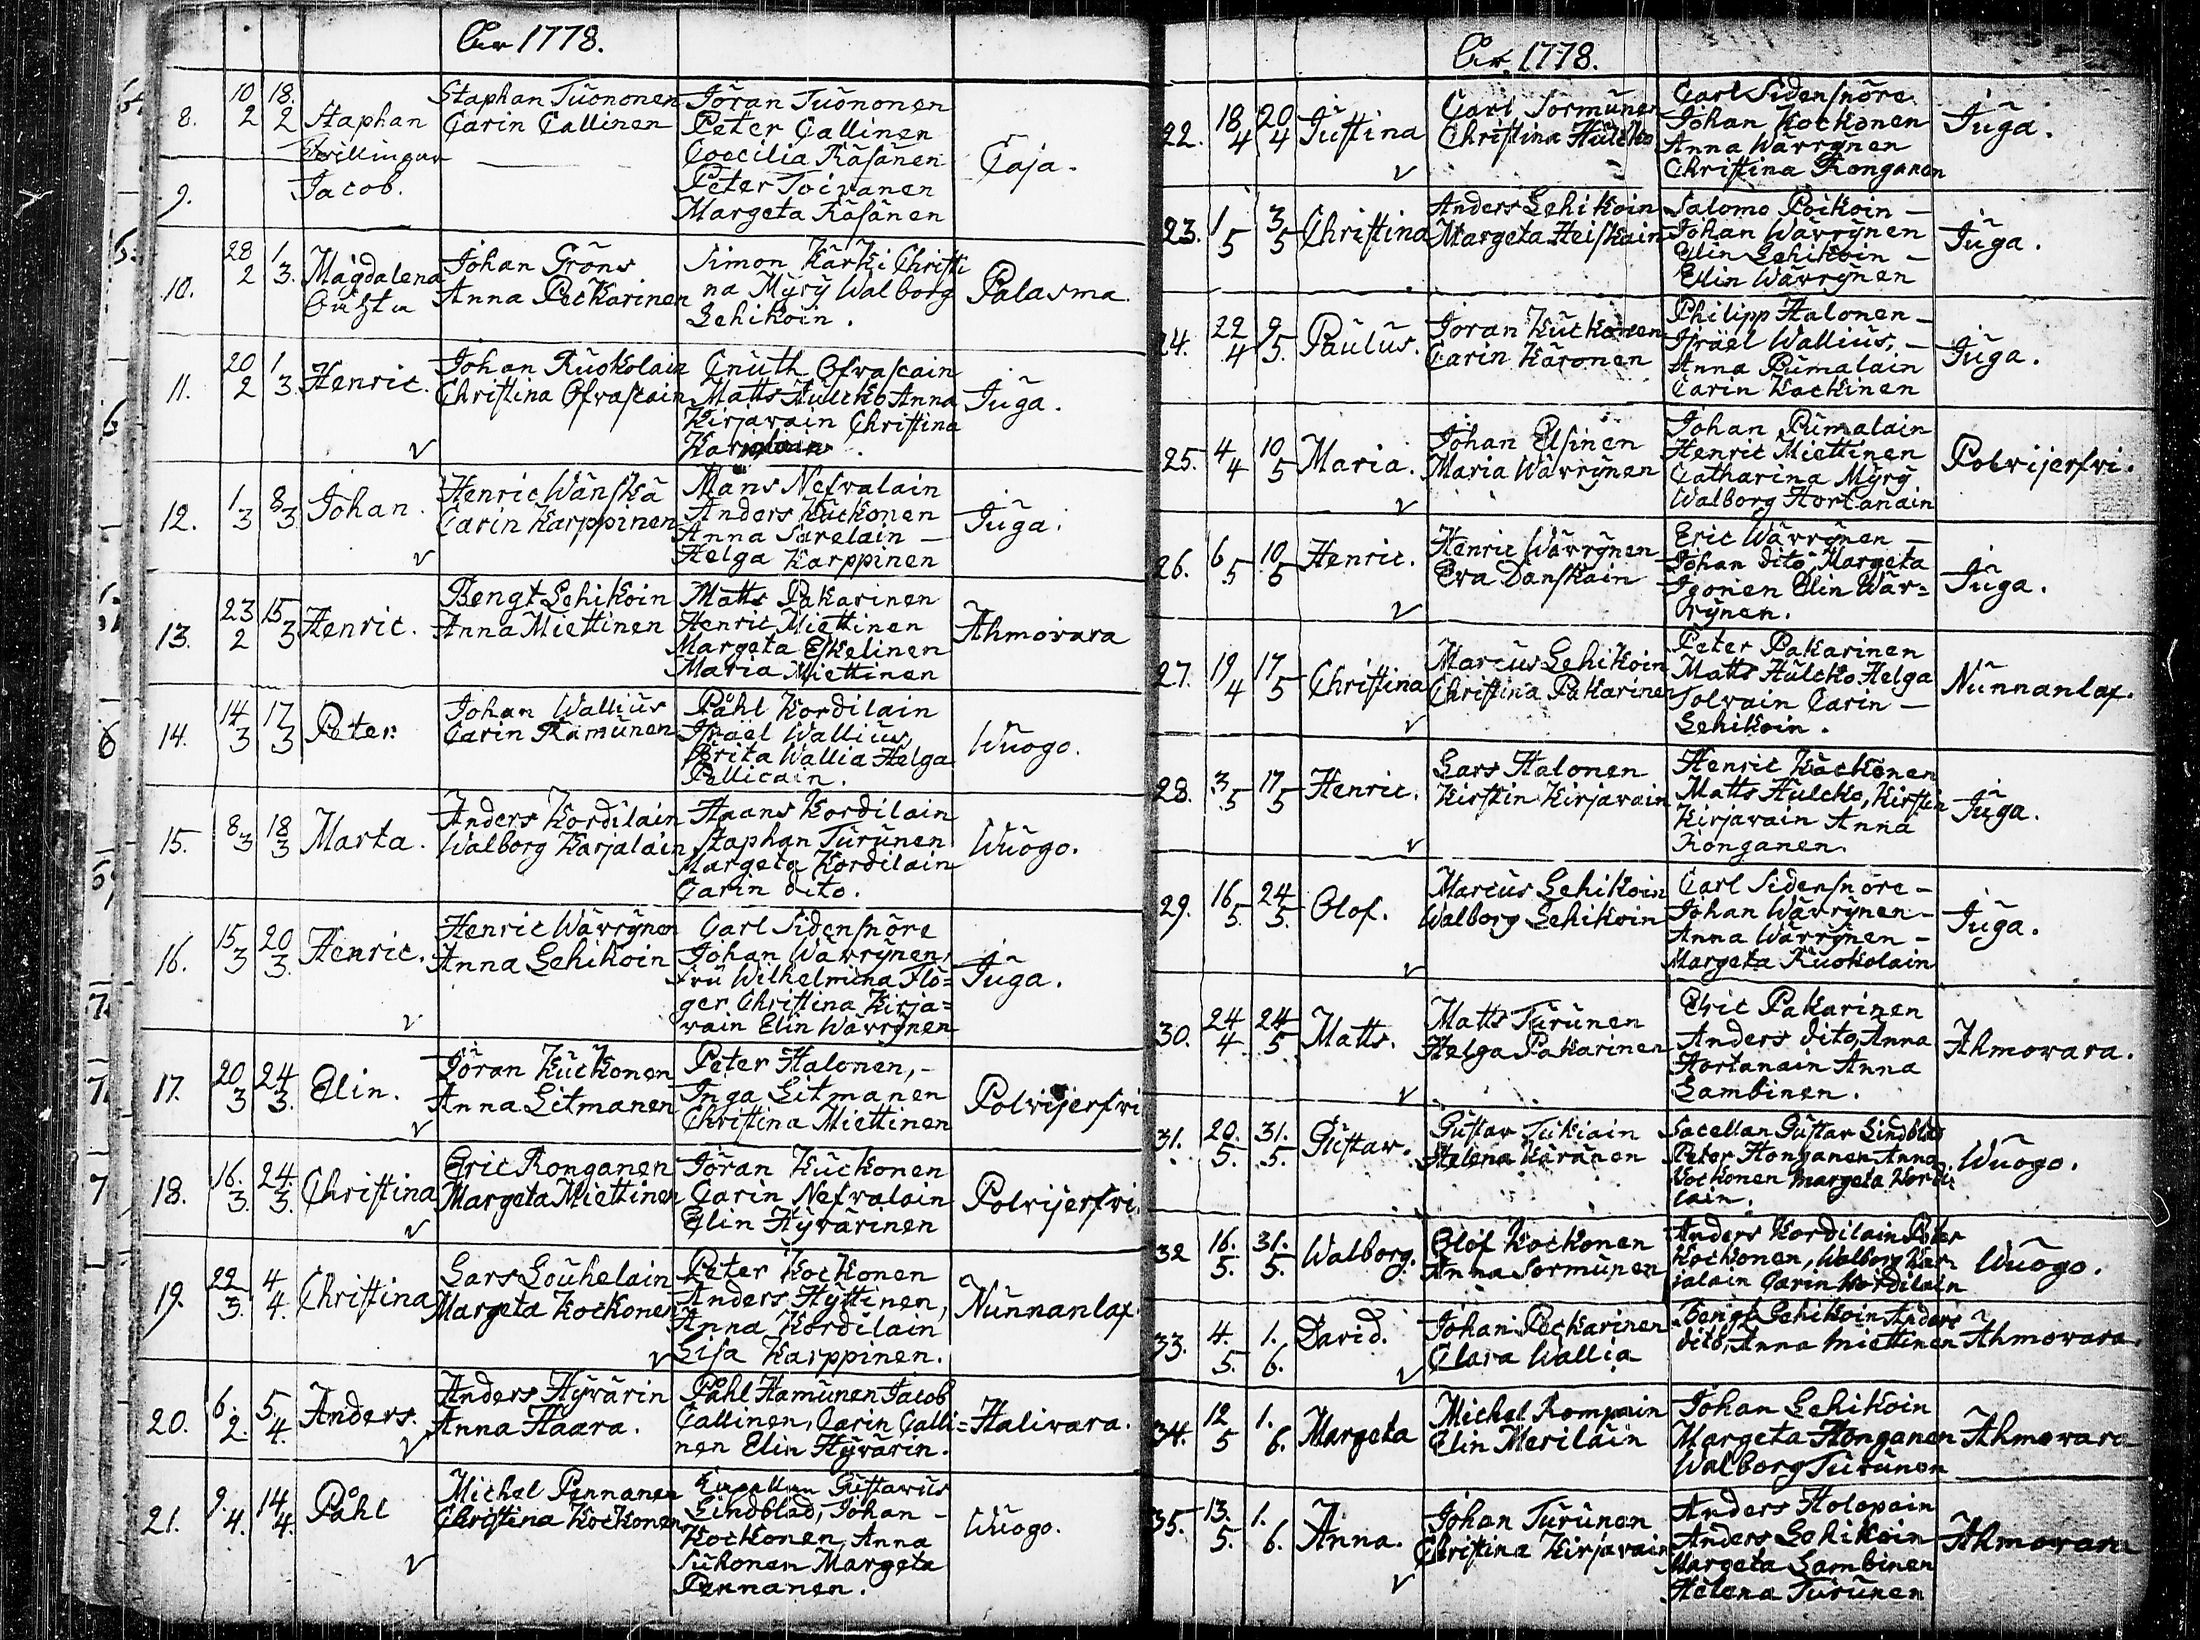 År 1778.
8. 10/2 18./2 Staphan Staphan Tuononen Jöran Tuononen
Carin Callinen Peter Callinen
Tvillingar Coecilia Räsänen Caja.
9. Jacob. Peter Toivanen
Margeta Räsänen
10. 28/2 1/3. Magdalena Johan Gröns Simon Kärki Christi
Anna Peckarinen na Myry Walborg Palasma.
Lehikoin.
11. 20/2 1/3. Henric. Johan Ruokolain Cnuth Ofvascain
Christina Ofvascain Matts Hulcko Anna Juga.
Kirjavain Christina
12. 1/3 8/3 Johan. Henric Wänskä Måns Nefvalain
Carin Karppinen Anders Kuckonen Juga.
Anna Sarelain —
Helga Karppinen
13. 23/2 15/3 Henric. Bengt Lehikoin Matts Pakarinen
Anna Miettinen Henric Miettinen Ahmovara
Margeta Eskelinen
Maria Miettinen
14. 14/3 17/3 Peter. Johan Wallius Påhl Kordilain
Carin Ramunen Israël Wallius, Wuogo.
Brita Wallia Helga
Pellicain.
15. 8/3 18/3 Marta. Anders Kordilain Haans Kordilain
Walborg Karjalain Staphan Turunen Wuogo.
Margeta Kordilain
Carin dito.
16. 15/3 20/3. Henric. Henric Wävrynen Carl Sidensnöre
Anna Lehikoin Johan Wävrynen, Juga.
Fru Wilhelmina Flö=
ger Christina Kirja=
vain Elin Wävrynen
17. 20/3 24/3. Elin. Jöran Kuckonen Peter Halonen, –
Anna Litmanen Inga Litmanen Polvijerfvi
Christina Miettinen
18. 16./3. 24./3. Christina Eric Ronganen Jöran Kuckonen
Margeta Miettinen Carin Nefvalain Polvijerfvi.
Elin Hyvärinen
19. 22/3. 4/4. Christina Lars Louhelain Peter Kockonen
Margeta Kockonen Anders Hyttinen, Nunnanlax.
Anna Kordilain
Lisa Karppinen.
20. 6./2. 5./4. Anders. Anders Hyvärin Påhl Hamunen Jacob
Anna Haara. Callinen, Carin Calli= Halivara.
nen Elin Hyvärin.
21. 9/4. 14/4. Påhl Michel Pennanen Capellan Gustavus
Christina Kockonen Lindblad, Johan – Wuogo.
Kockonen, Anna
Sukonen Margeta
Pennanen.
År 1778.
22. 18/4 20/4 Justina Carl Sormunen Carl Sidensnöre
Christina Hulcko Johan Kockonen Juga.
Anna Wävrynen
Christina Ronganen
23. 1/5 3/5 Christina Anders Lehikoin Salomo Poikoin —
Margeta Heiskain Johan Wävrynen Juga.
Elin Lehikoin –
Elin Wävrynen
24. 22/4 9/5. Paulus. Jöran Kuckonen Philipp Halonen –
Carin Käronen Israël Wallius, – Juga.
Anna Pumalain
Carin Kockinen
25. 4/4 10/5 Maria. Johan Elsinen Johan Pumalain
Maria Wävrynen Henric Miettinen Polvijerfvi.
Catharina Myry
Walborg Hortanain
26. 6/5 10/5 Henric. Henric Wävrynen Eric Wävrynen –
Eva Danskain Johan dito, Margeta Juga.
Igonen Elin Wäv=
rynen.
27. 19/4 17/5 Christina Marcus Lehikoin Peter Pakarinen
Christina Pakarinen Matts Hulcko, Helga Nunnanlax.
Tolvain Carin —
Lehikoin.
28. 3./5 17/5 Henric. Lars Halonen Henric Kackonen
Kirstin Kirjavain Matts Hulcko, Kirstin Juga.
Kirjavain Anna
Ronganen.
29. 16/5. 24/5. Olof. Marcus Lehikoin Carl Sidensnöre –
Walborg Lehikoin Johan Wävrynen – Juga.
Anna Wävrynen –
Margeta Ruokolain
30. 24/4 24/5 Matts. Matts Turunen Eric Pakarinen
Helga Pakarinen Anders dito, Anna Ahmovara.
Hortanain Anna
Lambinen.
31. 20./5. 31./5. Gustav. Gustav Tukiain Sacellan Gustav Lindblad
Helena Käränen Peter Honganen Anna Wuogo.
Kockonen Margeta Kordi
lain.
32 16./5. 31./5. Walborg. Olof Kockonen Anders Kordilain Peter
Anna Sormunen Kockonen, Walborg Kar- Wuogo.
jalain Carin Kordilain
33. 4./5. 1./6. David. Johan Peckarinen Bengt Lehikoin Anders
Clara Wallia dito, Anna Miettinen Ahmovara.
34. 12/5 1./6. Margeta Michel Rompain Johan Lehikoin
Elin Meriläin Margeta Honganen Ahmovara
Walborg Turunen
35. 13./5. 1./6. Anna. Johan Turunen Anders Holopain
Christina Kirjavain Anders Lehikoin Ahmovara
Margeta Lambinen
Helena Turunen